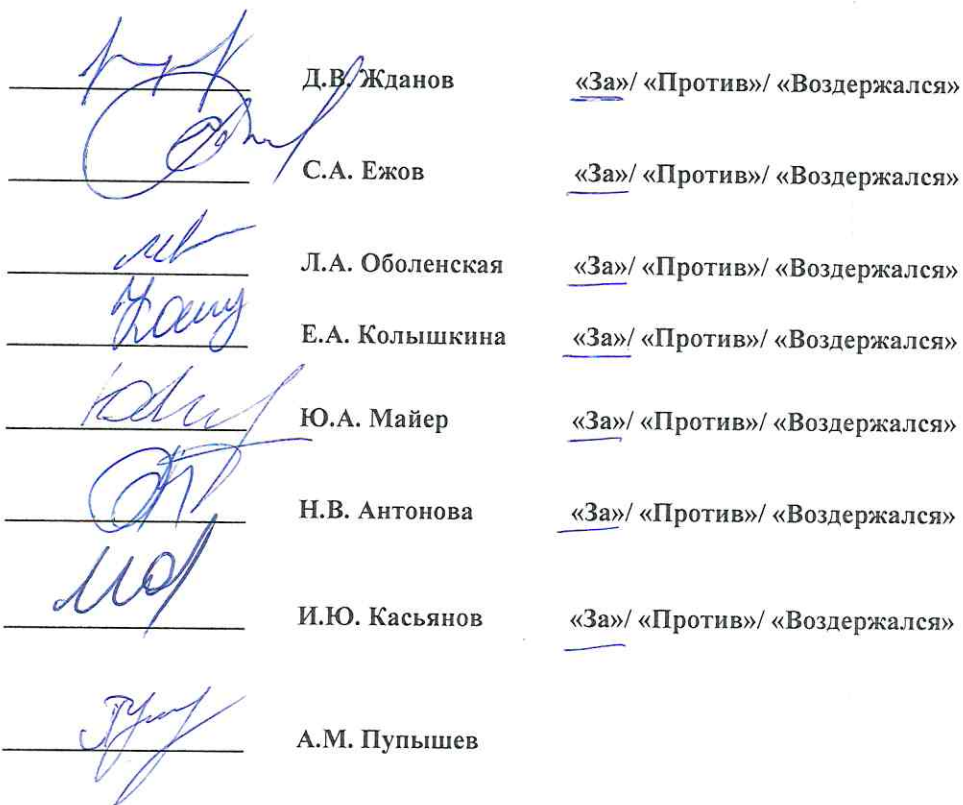 Д.В. Жданов «За»/ «Против»/ «Воздержался»
С.А. Ежов «За»/ «Против»/ «Воздержался»
Л.А. Оболенская «За»/ «Против»/ «Воздержался»
Е.А. Колышкина «За»/ «Против»/ «Воздержался»
Ю.А. Майер «За»/ «Против»/ «Воздержался»
Н.В. Антонова «За»/ «Против»/ «Воздержался»
И.Ю. Касьянов «За»/ «Против»/ «Воздержался»
А.М. Пупышев